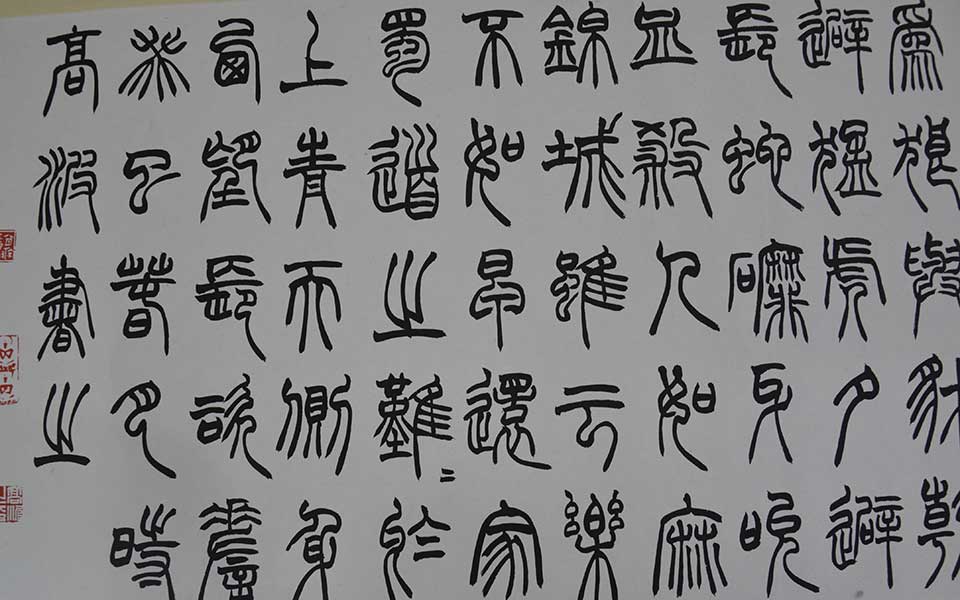 為狼與豺朝
避猛虎夕避
長蛇磨牙吮
血殺人如麻
錦城雖云樂
不如早還家
蜀道之難〻於
上青天側身
西望長咨嗟
癸巳春月時
高書之